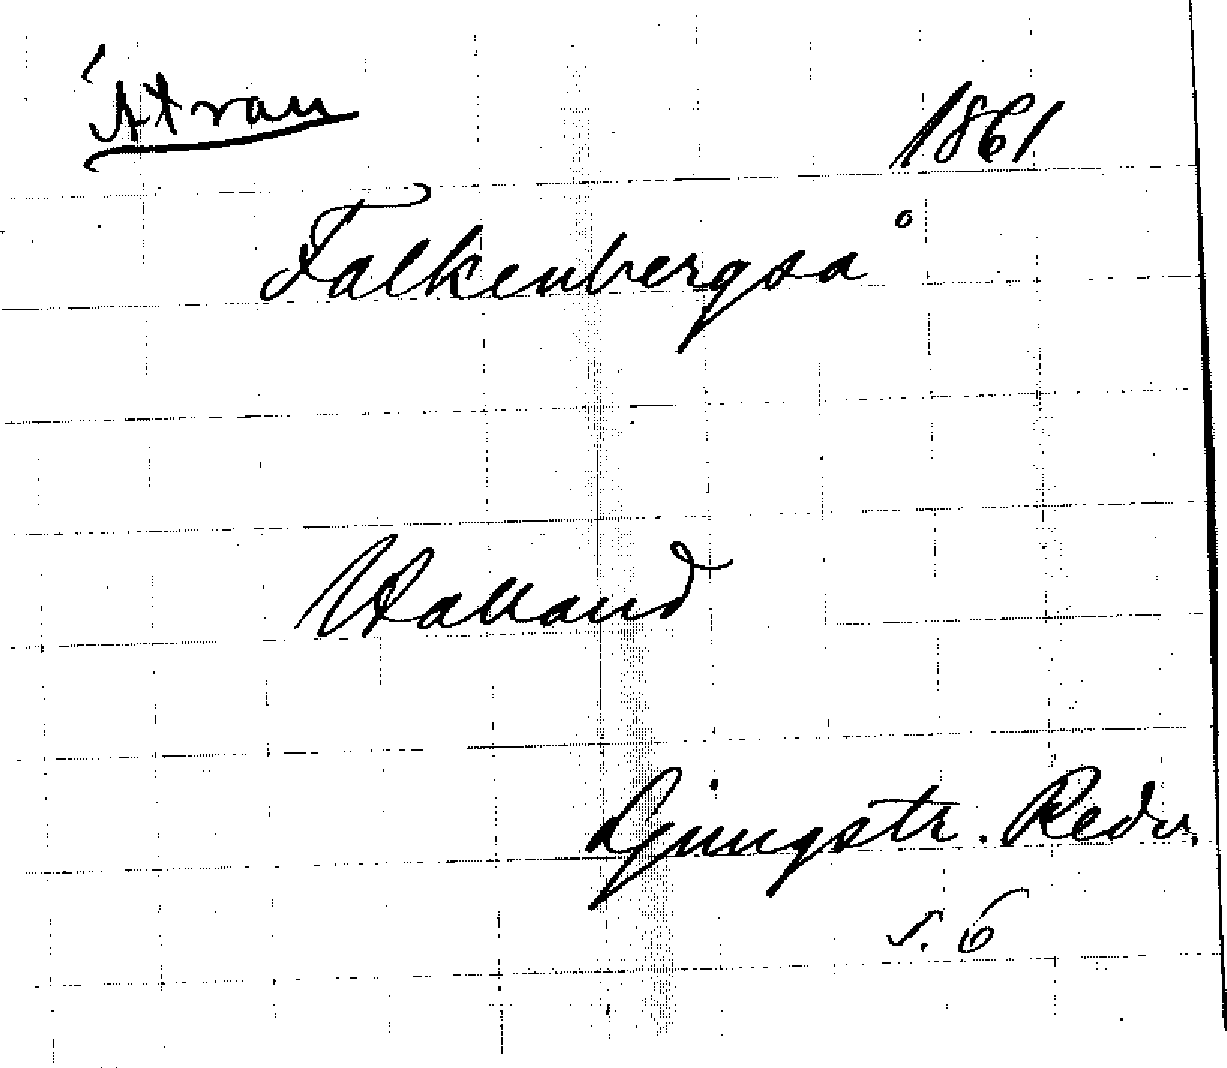 Ätran
1861
Falkenbergså
Halland
Ljungstr. Redv.
s. 6